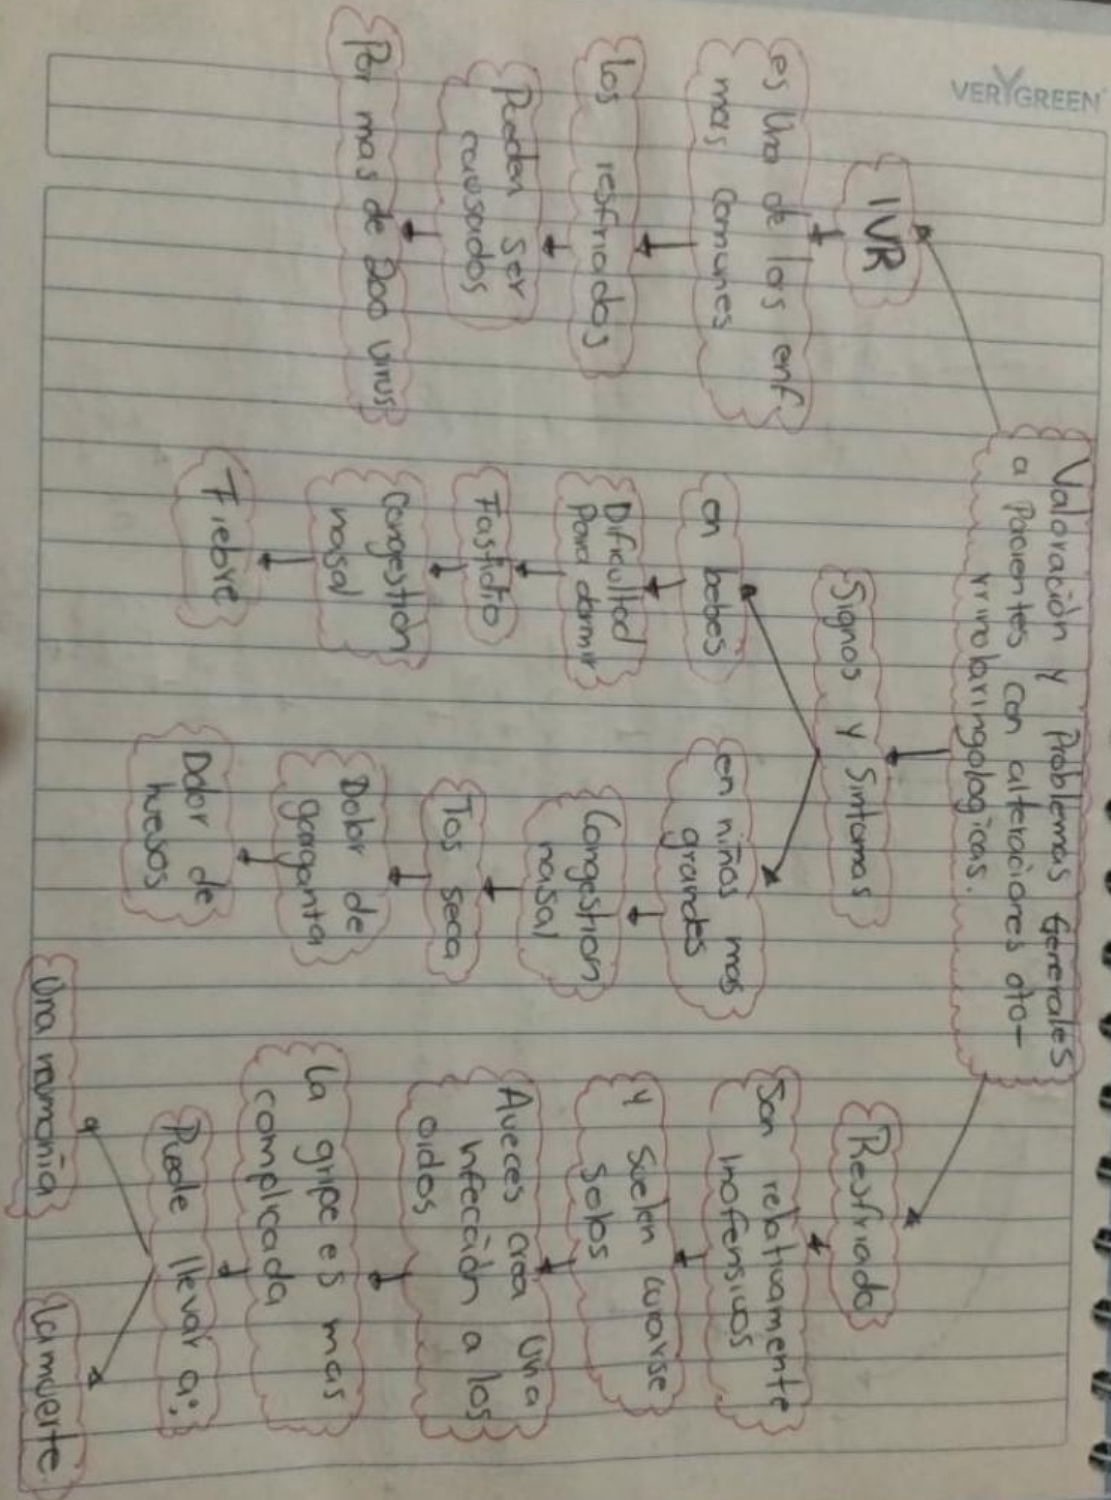 VERYGREEN
Valoración y Problemas Generales
a Pacientes con alteraciones oto-
rrinolaringologicas.
IVR
es Una de las enf.
mas comunes
los resfriados
Pueden Ser
causados
Por mas de 200 virus
Signos y Sintomas
en bebes
Dificultad
Para dormir
Fastidio
Congestión
nasal
Fiebre
en niños mas
grandes
Congestion
nasal
Tos seca
Dolor de
garganta
Dolor de
huesos
Resfriado
Son relativamente
inofensivos
Y Suelen curarse
Solos
Aveces crea Una
infección a los
oidos
La gripe es mas
complicada
Puede llevar a:
Una numonia
La muerte.